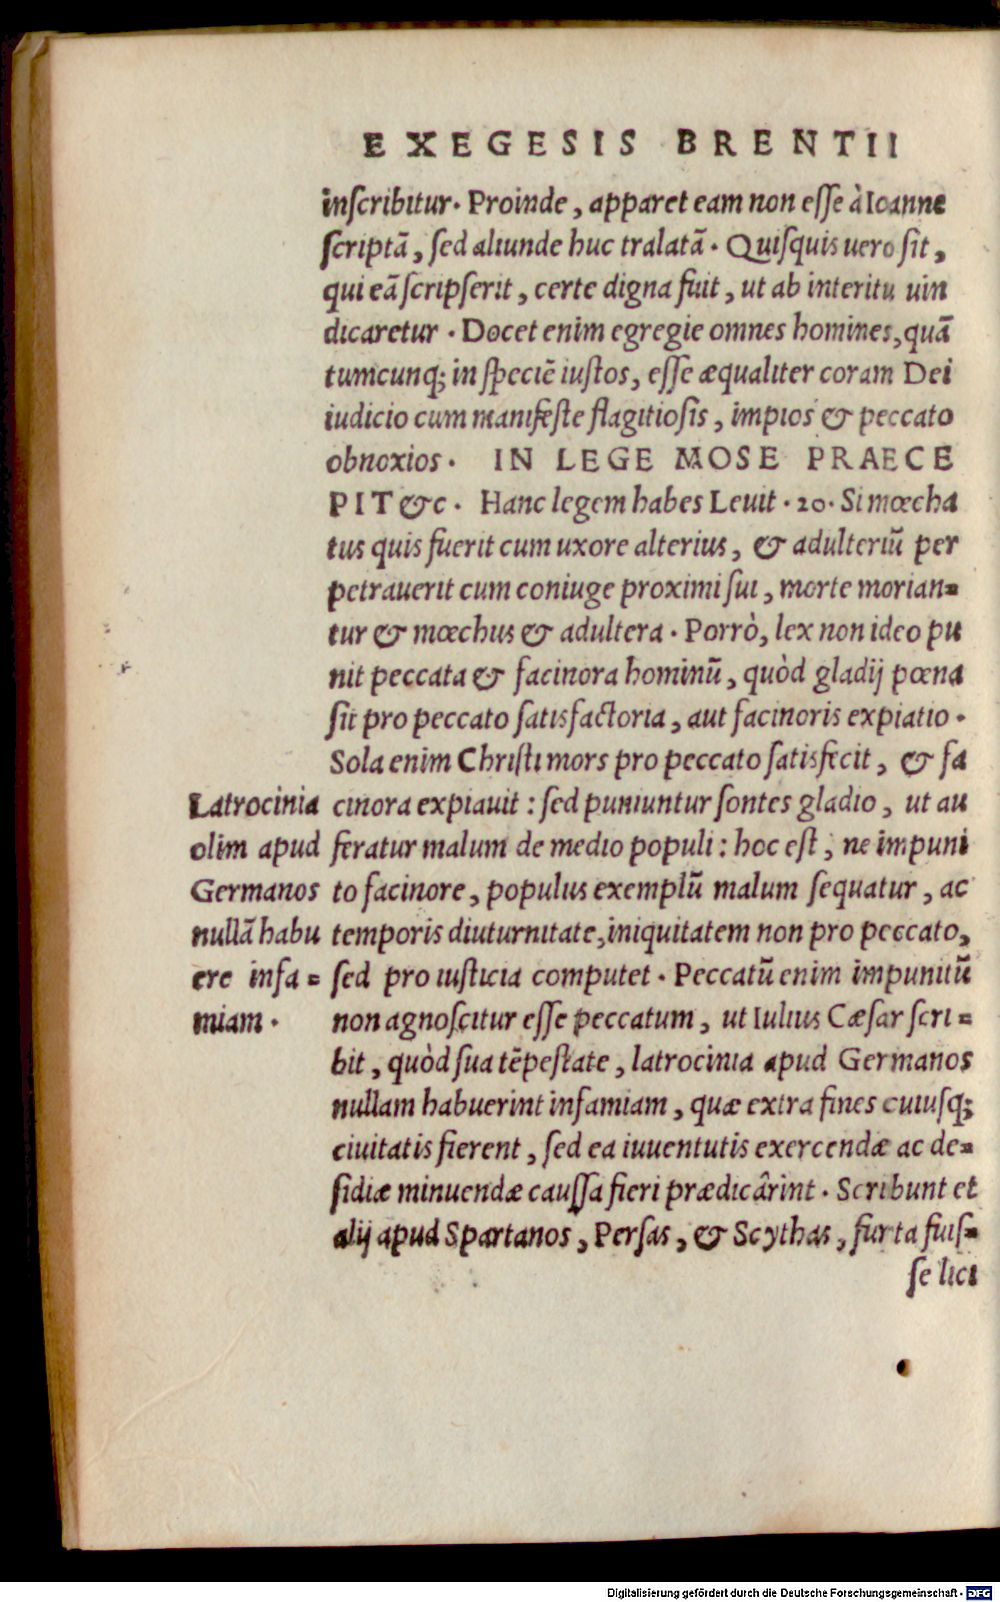 EXEGESIS BRENTII
inscribitur. Proinde, apparet eam non esse à Ioanne
scriptā, sed aliunde huc tralatā. Quisquis uero sit,
qui eā scripserit, certe digna fuit, ut ab interitu uin
dicaretur. Docet enim egregie omnes homines, quā
tumcunq; in speciē iustos, esse æqualiter coram Dei
iudicio cum manifeste flagitiosis, impios & peccato
obnoxios. IN LEGE MOSE PRAECE
PIT &c. Hanc legem habes Leuit. 20. Si mœcha
tus quis fuerit cum uxore alterius, & adulteriū per
petrauerit cum coniuge proximi sui, morte morian=
tur & mœchus & adultera. Porrò, lex non ideo pu
nit peccata & facinora hominū, quòd gladij pœna
sit pro peccato satisfactoria, aut facinoris expiatio.
Sola enim Christi mors pro peccato satisfecit, & fa
cinora expiauit: sed puniuntur sontes gladio, ut au
feratur malum de medio populi: hoc est, ne impuni
to facinore, populus exemplū malum sequatur, ac
temporis diuturnitate, iniquitatem non pro peccato,
sed pro iusticia computet. Peccatū enim impunitū
non agnoscitur esse peccatum, ut Iulius Cæsar scri=
bit, quòd sua tēpestate, latrocinia apud Germanos
nullam habuerint infamiam, quæ extra fines cuiusq;
ciuitatis fierent, sed ea iuuentutis exercendæ ac de=
sidiæ minuendæ caussa fieri prædicârint. Scribunt et
alij apud Spartanos, Persas, & Scythas, furta fuis=
se lici
Latrocinia
olim apud
Germanos
nullā habu
ere infa=
miam.
Digitalisierung gefördert durch die Deutsche Forschungsgemeinschaft - DFG